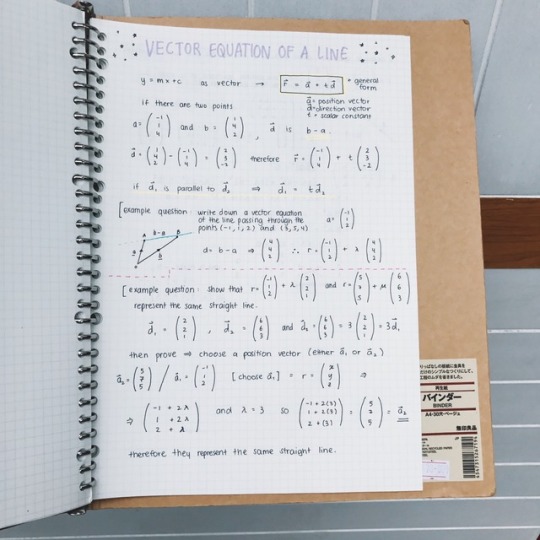 VECTOR EQUATION OF A LINE
y = mx+c as vector → r⃗ = a⃗ + t d⃗ * general form
a⃗ = position vector
d⃗ = direction vector
t = scalar constant
if there are two points
a = (-1 1 4) and b = (1 4 2) , d⃗ is b - a
d⃗ = (1 4 2) - (-1 1 4) = (2 3 -2) therefore r⃗ = (-1 1 4) + t (2 3 -2)
if d⃗₁ is parallel to d⃗₂ ⇒ d⃗₁ = t d⃗₂
[example question: write down a vector equation
of the line passing through the
points (-1, 1, 2) and (3, 5, 4)
a = (-1 1 2)
A b-a B
a b
d = b - a ⇒ (4 4 2) ∴ r = (-1 1 2) + λ (4 4 2)
[example question: show that r = (-1 1 2) + λ (2 2 1) and r = (5 7 5) + μ (6 6 3)
represent the same straight line.
d⃗₁ = (2 2 1) , d⃗₂ = (6 6 3) and d⃗₂ = (6 6 3) = 3 (2 2 1) = 3d⃗₁
then prove ⇒ choose a position vector (either a⃗₁ or a⃗₂)
a⃗₂ = (5 7 5) / a⃗₁ = (-1 1 2) [choose a⃗₁] = r = (x y z) ⇒
⇒ (-1 + 2λ 1 + 2λ 2 + λ) and λ = 3 so (-1 + 2(3) 1 + 2(3) 2 + (3)) = (5 7 5) = a⃗₂
therefore they represent the same straight line.
再生紙
バインダー
BINDER
A4・30穴・ベージュ
無印良品